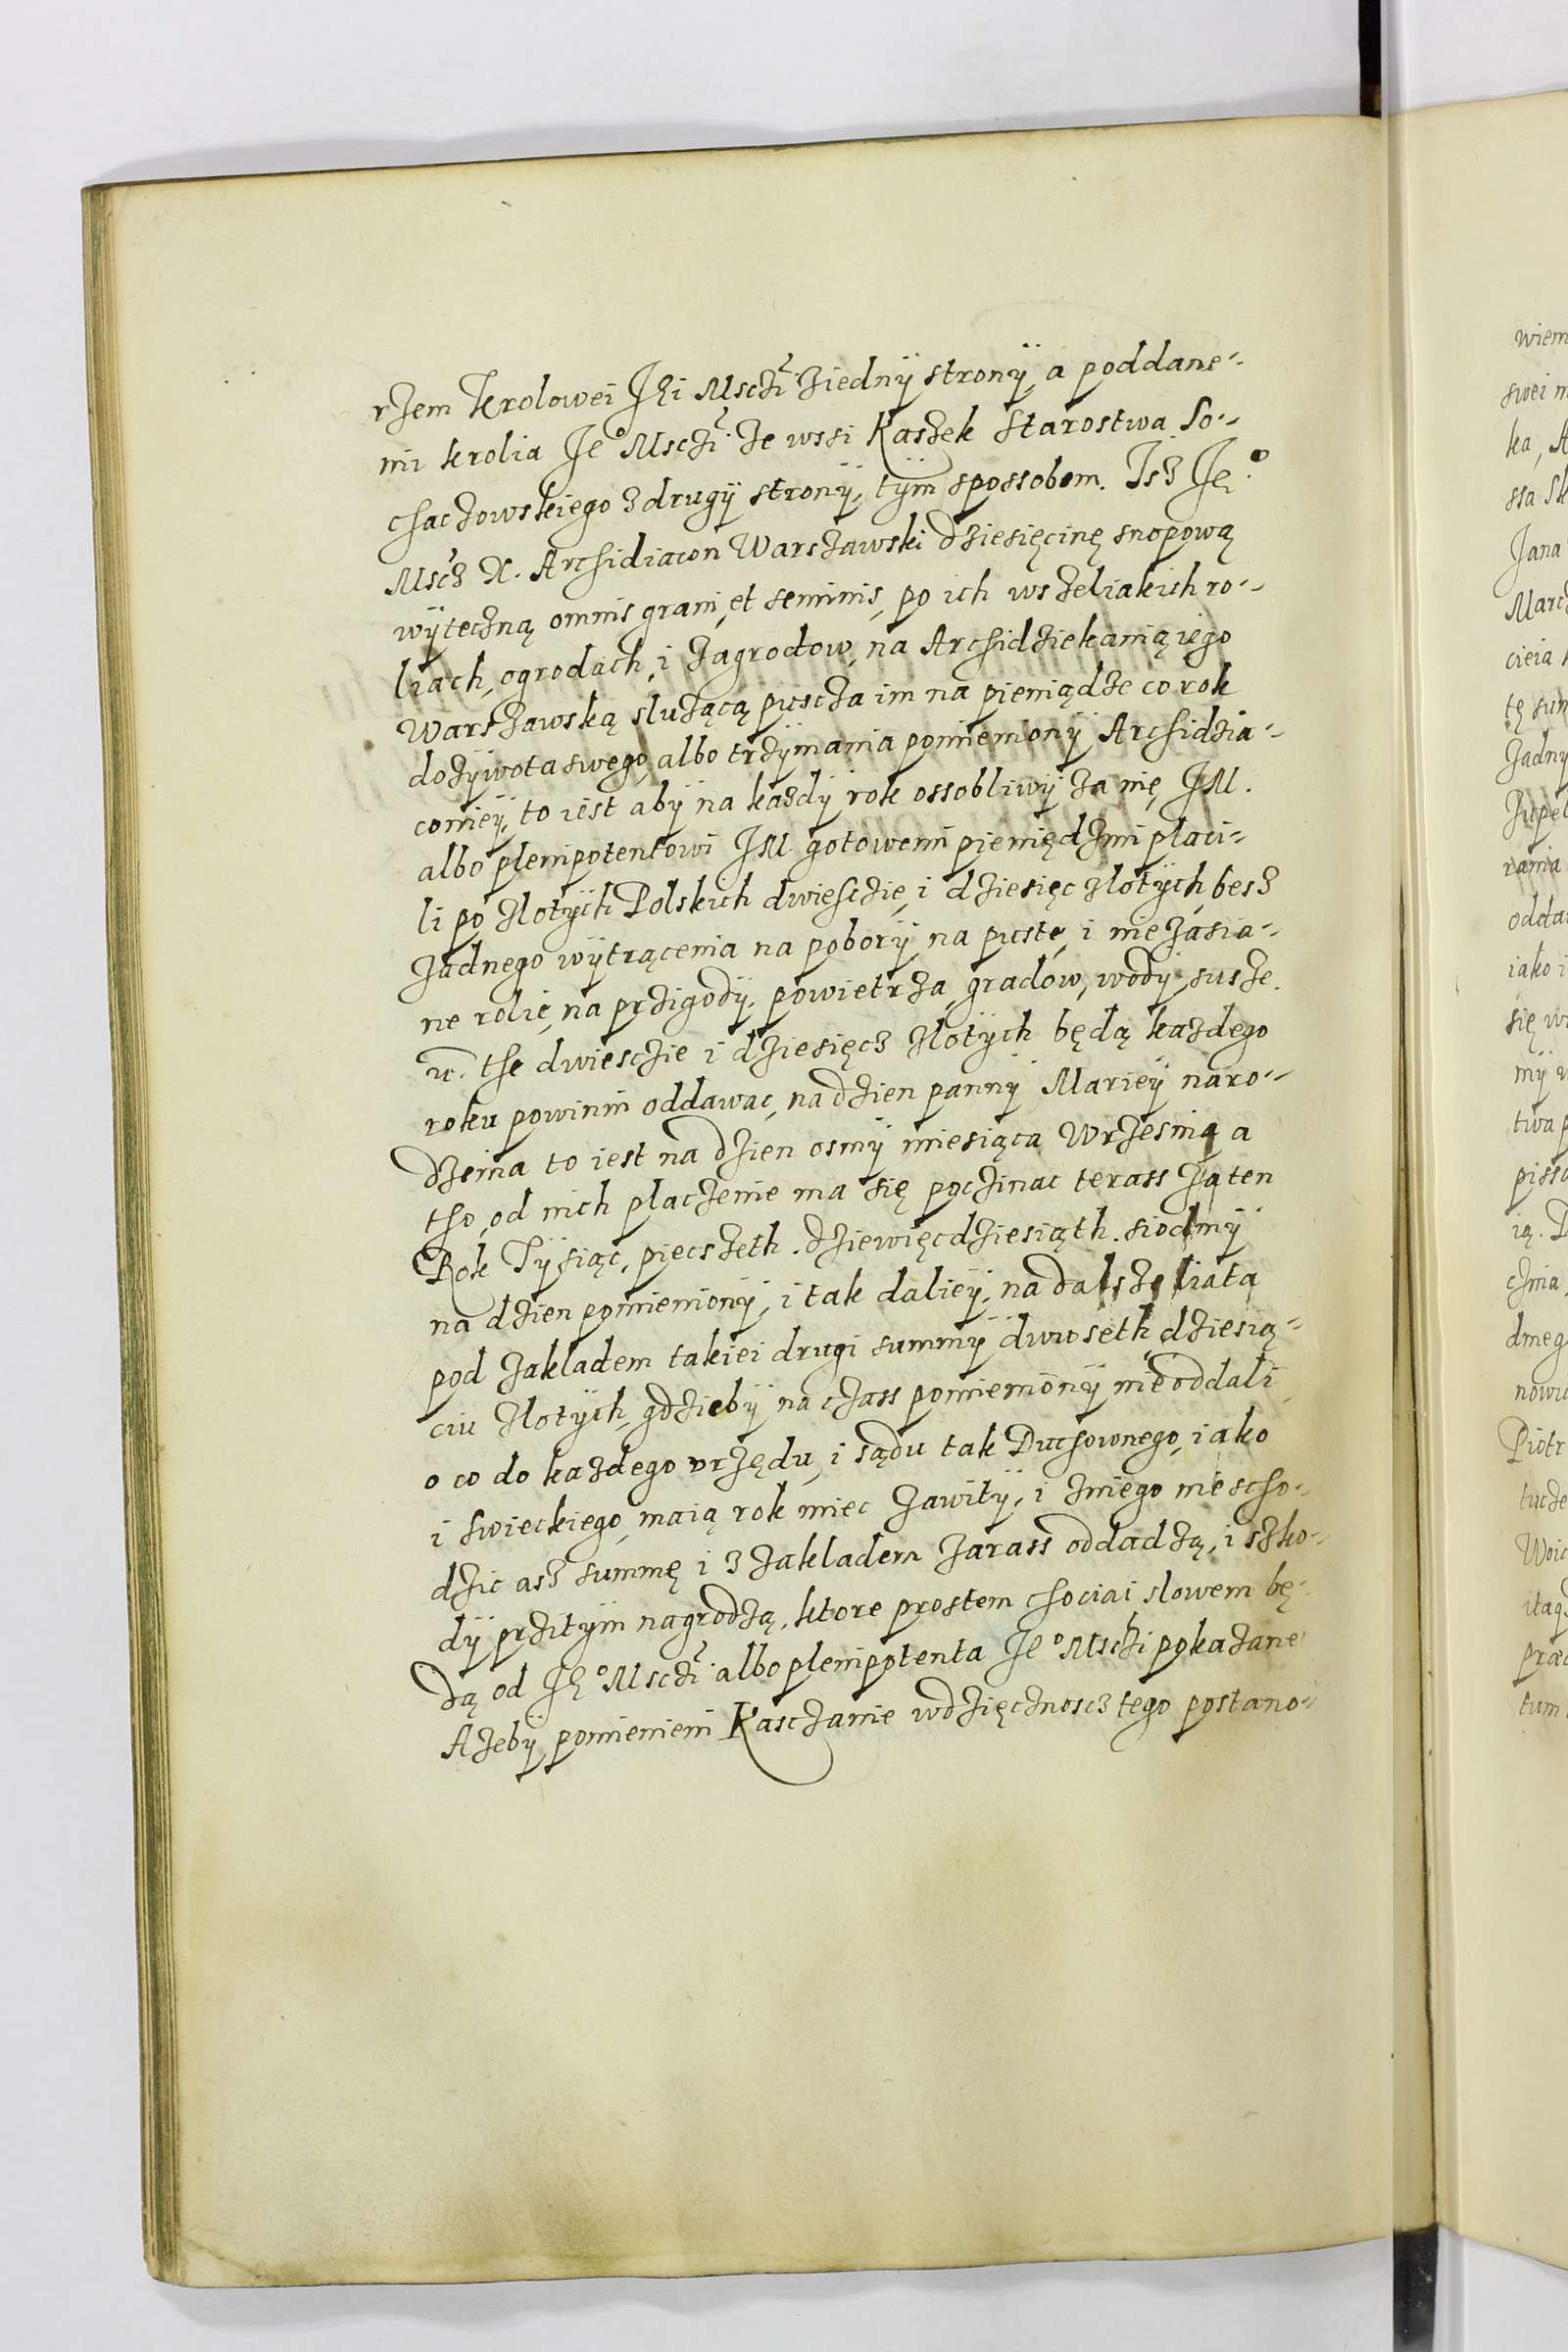 rzem Krolowei Jhi Msczi ziedny strony a poddane-
mi krolia Je° Msczi ze wssi Kaszek starostwa So-
chaczowskiego z drugy strony, tym spossobem. Isz Je°
Mscz X. Archidiacon Warszawski dziesięcinę snopową
wyteczną omnis grani, et seminis, po ich wszeliakich ro-
liach, ogrodach, i zagrodow, na Archidziekanią iego
Warszawską slużącą puscza im na pieniądze co rok
do żywota swego, albo trzymania pomieniony Archidzia-
coniey, to iest aby na każdy rok ossobliwy za nię JM.
albo plenipotentowi JM. gotowemi pieniędzmi placi-
li po zlotych Polskich dwiescie, i dziesięc zlotych, besz
żadnego wytrącenia na pobory na puste, i nie zasia-
ne rolie, na przigody, powietrza, gradow, wody, susze.
w. the dwieszie i dziesięcz zlotych będą każdego
roku powinni oddawac, na dzien panny Mariey naro-
dzenia to iest na dzien osmy miesiąca Wrzesnia a
tho, od nich placzenie ma się poczinac terass za ten
Rok Tysiąc, pięcszeth. dziewięcdziesiąth. siodmy
na dzien pomieniony, i tak daliey, na dalsze liata
pod zakladem takiei drugi summy dwuseth dziesią-
ciu zlotych, gdzieby na czass pomieniony nie oddali
o co do każdego vrzędu, i sądu tak Duchownego, iako
i swieckiego, maią rok miec zawity, i zniego nie scho-
dzic asz summę i z zakladem zarass oddadzą, i szko-
dy przitym nagrodzą, ktore prostem chociai slowem bę-
dą od Je° Msczi albo plenipotenta Je° Msczi pokazane
Ażeby pomienieni Kasczanie wdzięcznosez tego postano-